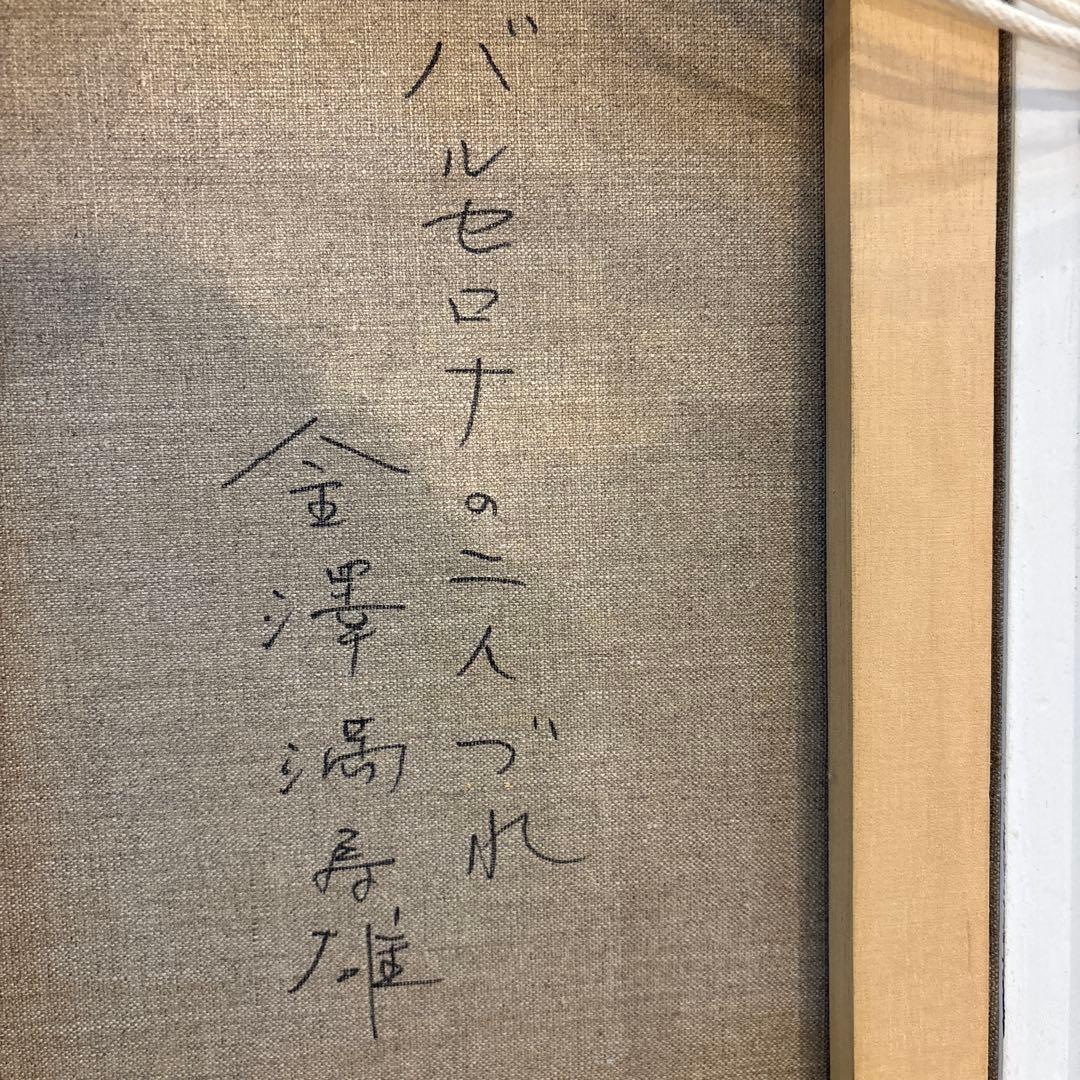 バルセロナの二人づれ
金澤満寿雄